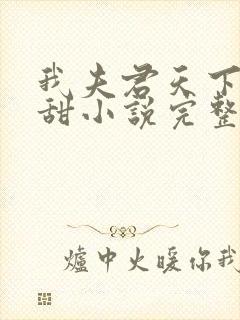 我夫君天下
甜小說完整
爐中火暖你我